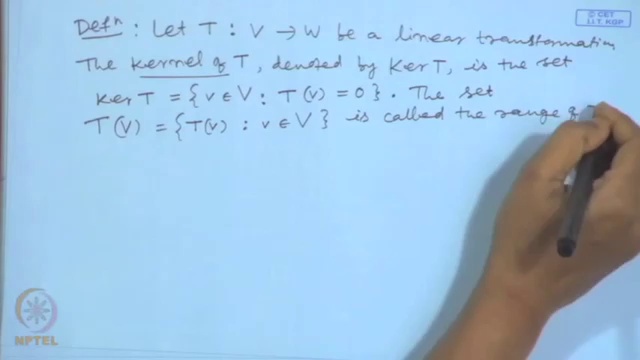 © CET
I.I.T. KGP
Defn : Let T : V → W be a linear transformation
The Kernel of T, denoted by Ker T, is the set
Ker T = {v ∈ V : T(v) = 0}. The set
T(V) = {T(v) : v ∈ V} is called the range of T
NPTEL